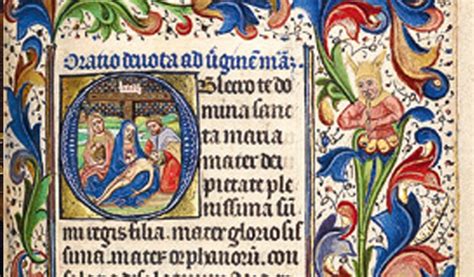 Oratio deuota ad v̄ginē maꝫ
OBsecro te do
mina sanc
ta maria
mater dei
pietate ple
nissima sū
mi regis filia. mater glorio sis
sima. mater orphanorū. con